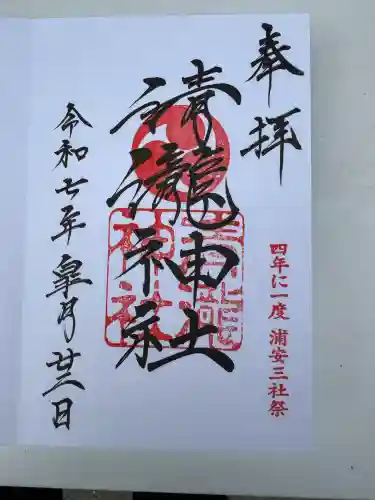 奉拝
清瀧神社
清瀧
神社
四年に一度 浦安三社祭
令和七年皐月廿二日